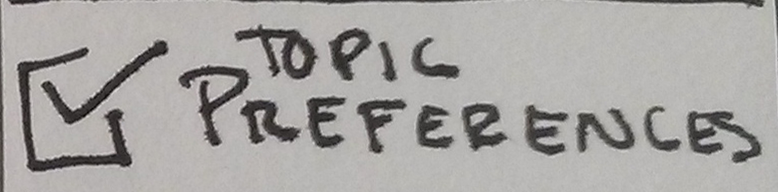 TOPIC
PREFERENCES